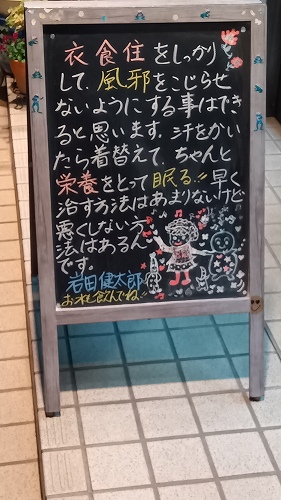 衣食住をしっかり
して、風邪をこじらせ
ないようにする事はでき
ると思います。汗をかい
たら着替えて、ちゃんと
栄養をとって眠る!!早く
治す方法はあまりないけど
悪くしない方
法はあるん
です。
岩田健太郎
お水も飲んでね!!